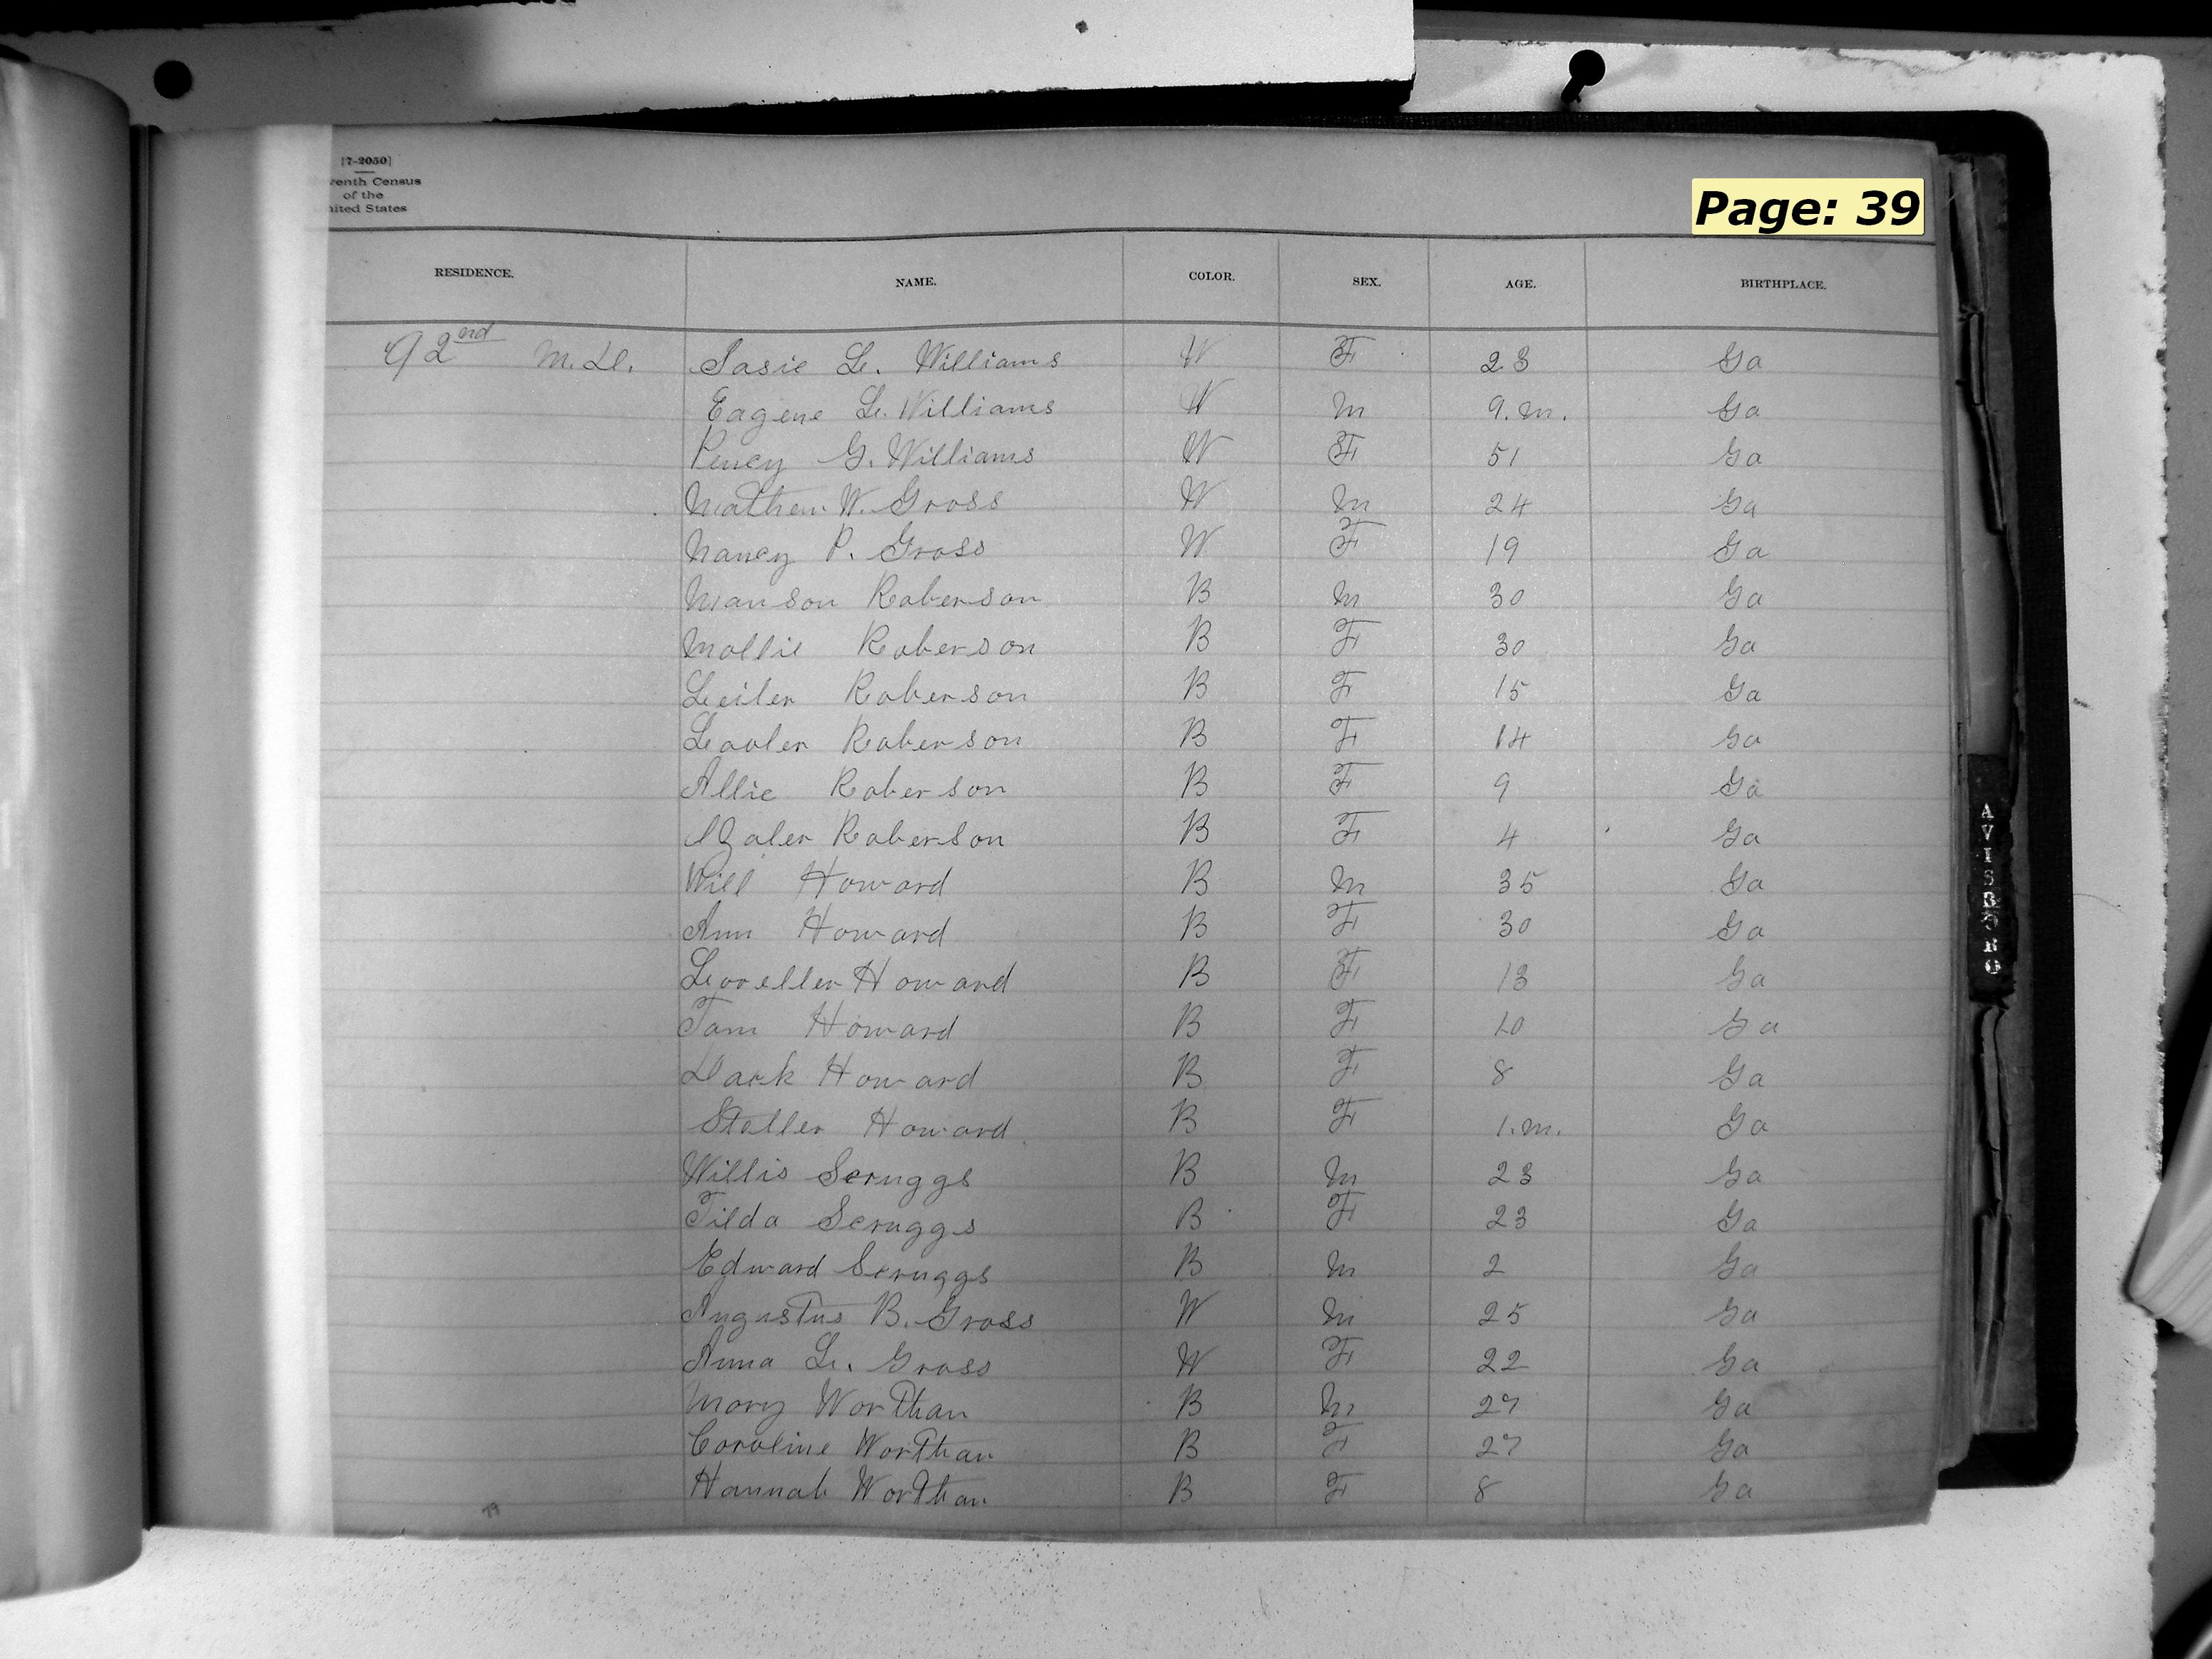 Page: 39
[7-2050]
venth Census
of the
nited States
RESIDENCE. NAME. COLOR. SEX. AGE. BIRTHPLACE.
92nd M.D. Sasie L. Williams W F 23 Ga
Eagene L. Williams W M 9.m. Ga
Pency G. Williams W F 51 Ga
Mathew W. Gross W M 24 Ga
Nancy P. Gross W F 19 Ga
Manson Roberson B M 30 Ga
Mollie Roberson B F 30 Ga
Leiler Roberson B F 15 Ga
Leooler Roberson B F 14 Ga
Allie Roberson B F 9 Ga
Roberson B F 4 Ga
Will Howard B M 35 Ga
Ann Howard B F 30 Ga
Howard B F 13 Ga
Tom Howard B F 10 Ga
Dark Howard B F 8 Ga
Steller Howard B F 1.m. Ga
Willis Scruggs B M 23 Ga
Tilda Scruggs B F 23 Ga
Edward Scruggs B M 2 Ga
Augustus B. Gross W M 25 Ga
Anna L. Gross W F 22 Ga
Mory Worthan B M 27 Ga
Caroline Worthan B F 27 Ga
Hannah Worthan B F 8 Ga
AVISBORO